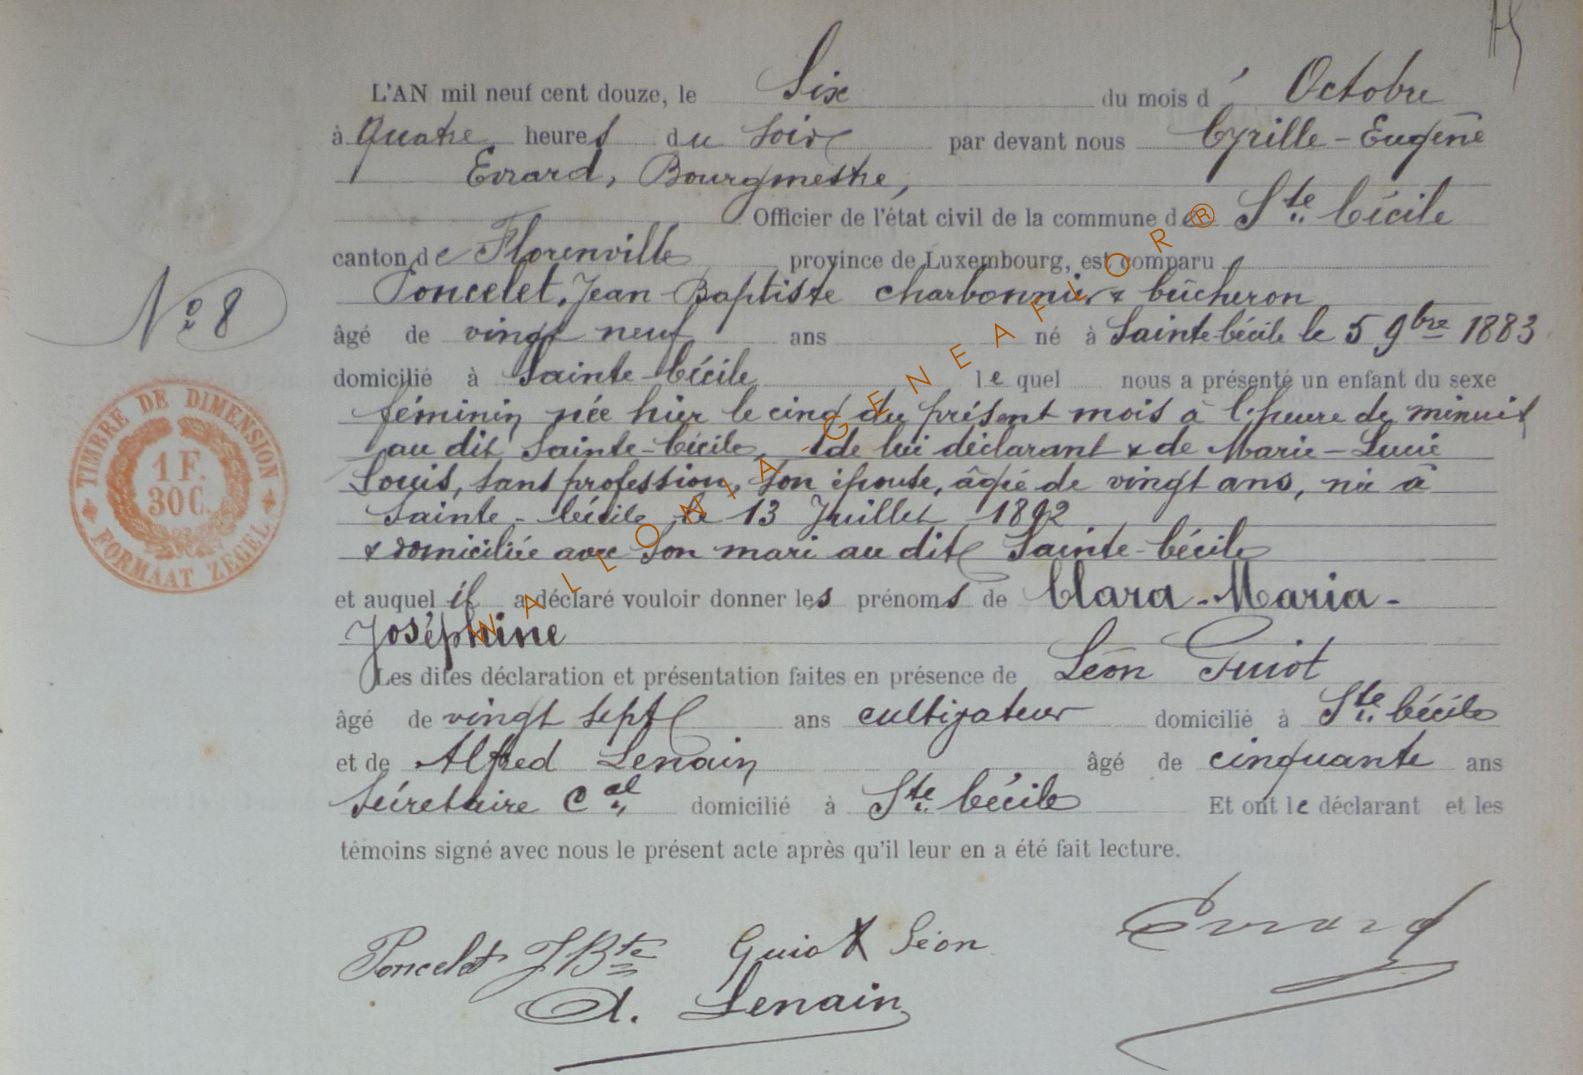 L'AN mil neuf cent douze, le Six du mois d' Octobre
à Quatre heures du Soir par devant nous Cyrille-Eugène
Evrard, Bourgmestre,
Officier de l'état civil de la commune de Ste Cécile
canton de Florenville province de Luxembourg, est comparu
Poncelet, Jean-Baptiste charbonnier & bûcheron
âgé de vingt neuf ans né à Sainte-Cécile le 5 9bre 1883
domicilié à Sainte-Cécile lequel nous a présenté un enfant du sexe
féminin née hier le cinq du présent mois à l'heure de minuit
au dit Sainte-Cécile, de lui déclarant & de Marie-Lucie
Louis, sans profession, son épouse, âgée de vingt ans, née à
Sainte-Cécile le 13 Juillet 1892
& domiciliée avec son mari au dit Sainte-Cécile
et auquel il a déclaré vouloir donner les prénoms de Clara-Maria-
Joséphine
Les dites déclaration et présentation faites en présence de Léon Guiot
âgé de vingt sept ans cultivateur domicilié à Ste Cécile
et de Alfred Lenain âgé de cinquante ans
Sécretaire Cal domicilié à Ste Cécile Et ont le déclarant et les
témoins signé avec nous le présent acte après qu'il leur en a été fait lecture.
Poncelet JBte Guiot Léon Evrard
A. Lenain
No 8
TIMBRE DE DIMENSION
1 F.
30 C.
FORMAAT ZEGEL
WALLONIA-GENEAFLOR®